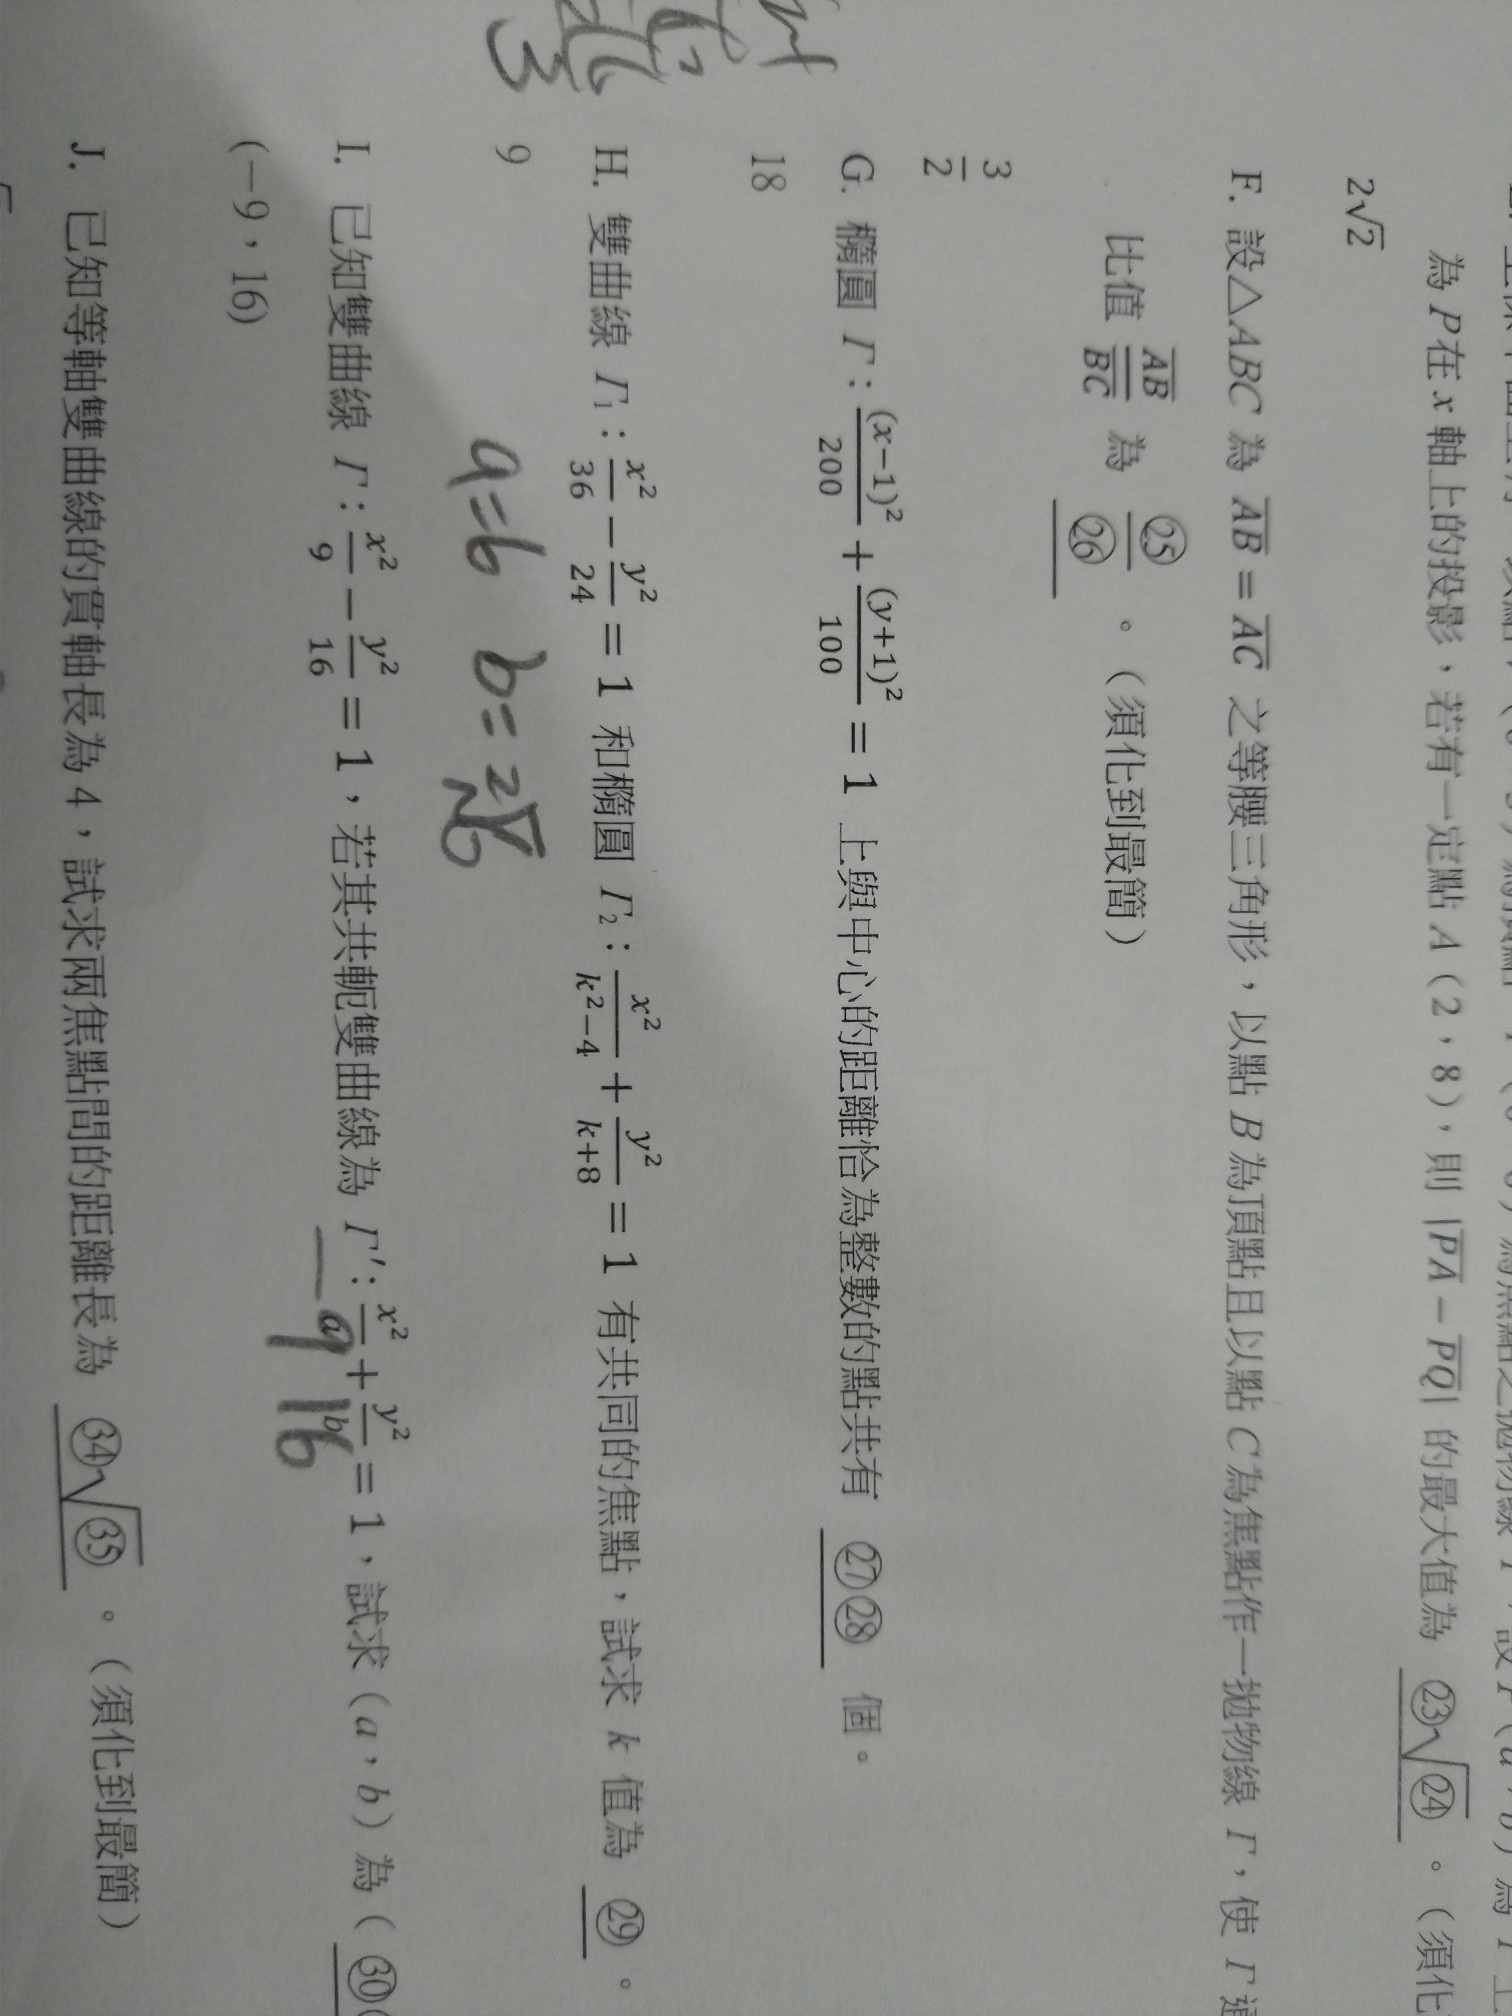 為 P 在 x 軸上的投影，若有一定點 A（2，8），則 |PA－PQ| 的最大值為 ㉓√㉔ 。（須化
2√2
F. 設△ABC 為 AB = AC 之等腰三角形，以點 B 為頂點且以點 C 為焦點作一拋物線 Γ，使 Γ 通
比值 AB/BC 為 ㉕/㉖ 。（須化到最簡）
3/2
G. 橢圓 Γ：(x−1)²/200 + (y+1)²/100 = 1 上與中心的距離恰為整數的點共有 ㉗㉘ 個。
18
H. 雙曲線 Γ₁：x²/36 − y²/24 = 1 和橢圓 Γ₂：x²/(k²−4) + y²/(k+8) = 1 有共同的焦點，試求 k 值為 ㉙ 。
9
a=6 b=2√6
I. 已知雙曲線 Γ：x²/9 − y²/16 = 1，若其共軛雙曲線為 Γ′：x²/a + y²/b = 1，試求（a，b）為（㉚
−9 16
(−9，16)
J. 已知等軸雙曲線的貫軸長為 4，試求兩焦點間的距離長為 ㉞√㉟ 。（須化到最簡）